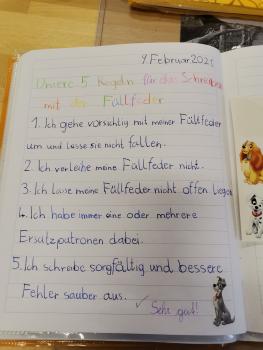 9. Februar 2021
Unsere 5 Regeln für das Schreiben
mit der Füllfeder
1. Ich gehe vorsichtig mit meiner Füllfeder
um und lasse sie nicht fallen.
2. Ich verleihe meine Füllfeder nicht.
3. Ich lasse meine Füllfeder nicht offen liegen
4. Ich habe immer eine oder mehrere
Ersatzpatronen dabei.
5. Ich schreibe sorgfältig und bessere
Fehler sauber aus.
Sehr gut!